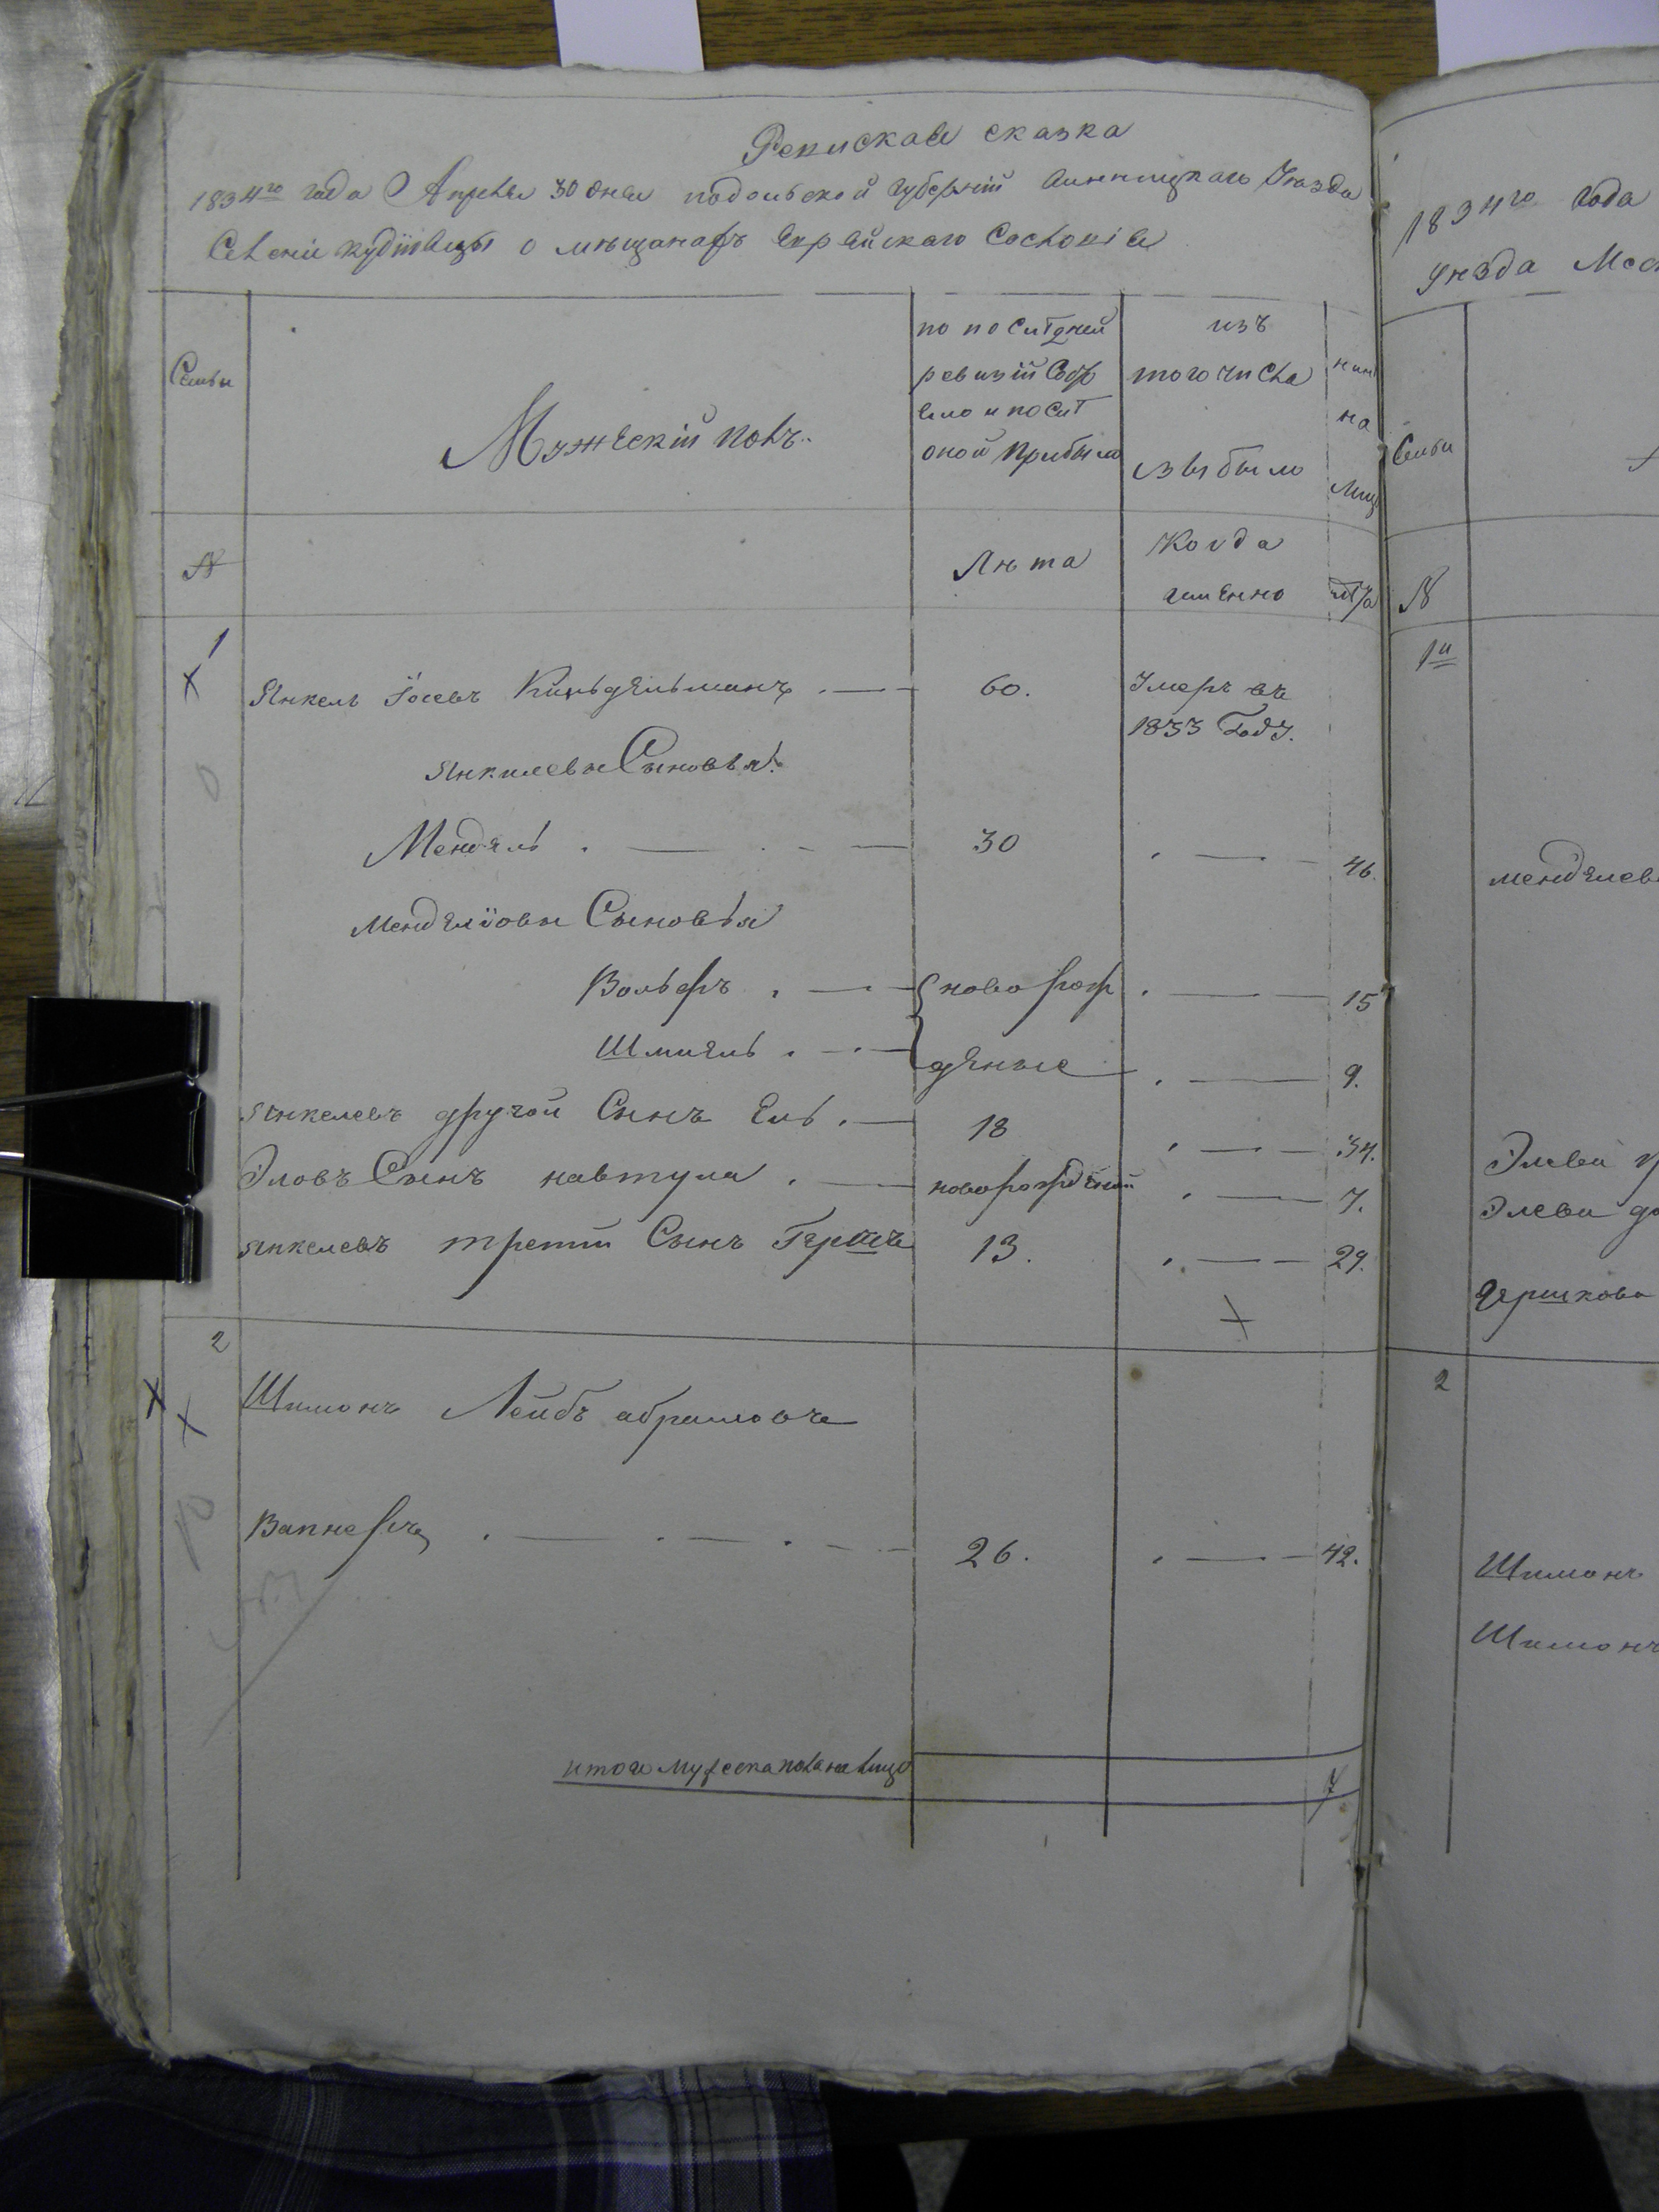 Ревискае сказка
1834го года Апреля 30 дня подольской губерніи винницкаго Уезда
Селеніи кудіивцы о мещанахъ Еврейскаго Состоніе
Семьи
Мужескій полъ
по последней ревизіи Состояло и после оной прибыло
изъ того числа выбыло
ныне на лице
№
Лета
Когда именно
лета
1
Янкель Іосевъ 60. Умеръ въ
1833 Году.
Янкилевы Сыновья:
Мендель 30 46.
Мендлiовы Сыновья
Вольфъ новорож 15
Шмиль деные 9.
Янкелевъ другой Сынъ Ель 18 34.
Эловъ Сынъ навтула новорожденой 7.
янкелевъ третій Сынъ Гершъ 13. 29.
2
Шимонъ Лейбъ абрамовъ
Вапнеръ 26. 42.
итого мужеска пола на лицо 7
1834го года
уезда
Семьи
№
1й
менделев
Элева
Элева
Гершкова
2
Шимонъ
Шимонъ